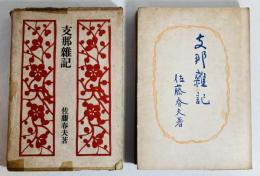 支那雜記
佐藤春夫著
支那雜記
佐藤春夫著